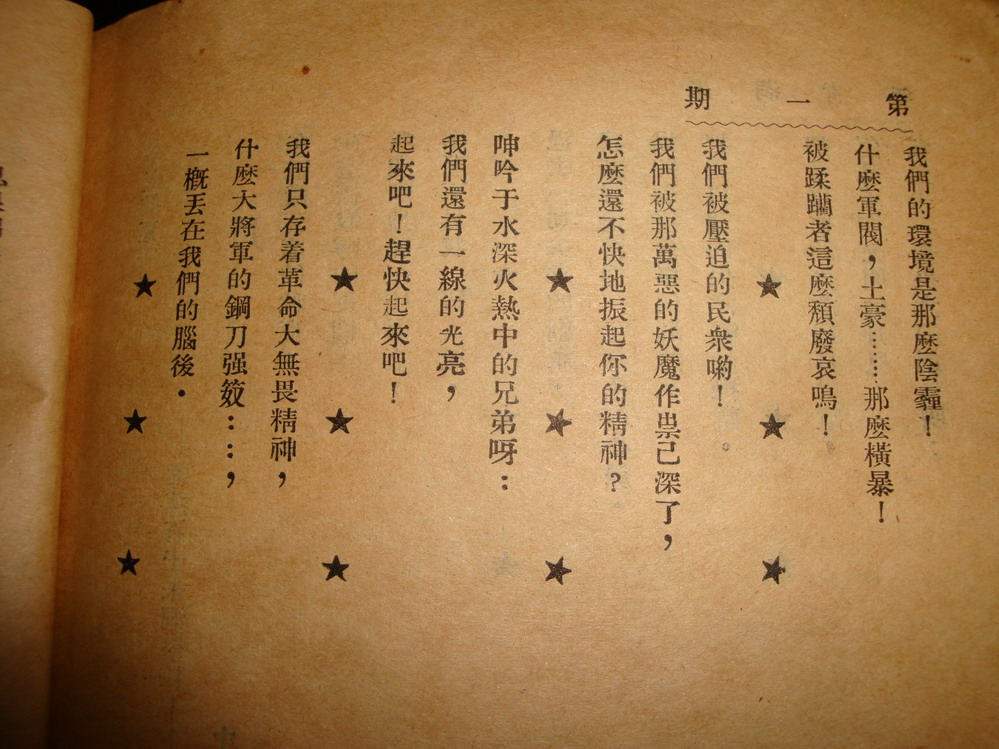 第一期
我們的環境是那麼陰霾！
什麼軍閥，土豪……那麼橫暴！
被蹂躪者這麼頹廢哀鳴！
★ ★ ★
我們被壓迫的民衆喲！
我們被那萬惡的妖魔作祟己深了，
怎麼還不快地振起你的精神？
★ ★ ★
呻吟于水深火熱中的兄弟呀：
我們還有一線的光亮，
起來吧！趕快起來吧！
★ ★ ★
我們只存着革命大無畏精神，
什麼大將軍的鋼刀强㢤：：，
一概丟在我們的腦後．
★ ★ ★